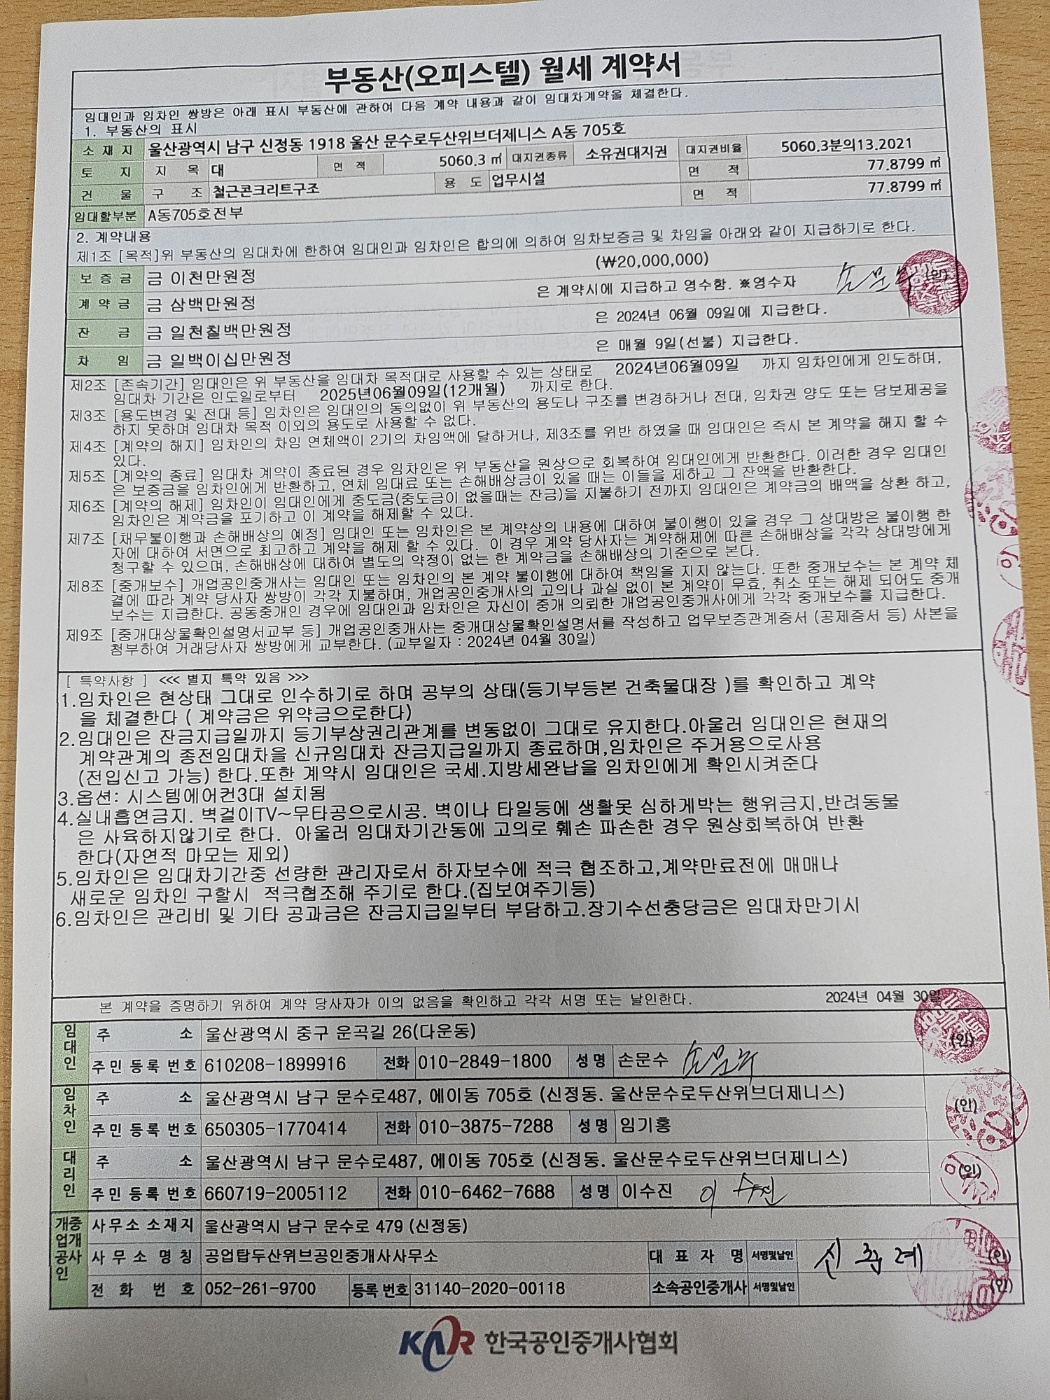 부동산(오피스텔) 월세 계약서
임대인과 임차인 쌍방은 아래 표시 부동산에 관하여 다음 계약 내용과 같이 임대차계약을 체결한다.
1. 부동산의 표시
소 재 지 울산광역시 남구 신정동 1918 울산 문수로두산위브더제니스 A동 705호
토 지 지 목 대 면 적 5060.3 ㎡ 대지권종류 소유권대지권 대지권비율 5060.3분의13.2021
건 물 구 조 철근콘크리트구조 용 도 업무시설 면 적 77.8799 ㎡
임대할부분 A동705호전부 면 적 77.8799 ㎡
2. 계약내용
제1조 [목적]위 부동산의 임대차에 한하여 임대인과 임차인은 합의에 의하여 임차보증금 및 차임을 아래와 같이 지급하기로 한다.
보 증 금 금 이천만원정 (₩20,000,000)
계 약 금 금 삼백만원정 은 계약시에 지급하고 영수함. ※영수자 손문수 (인)
잔 금 금 일천칠백만원정 은 2024년 06월 09일에 지급한다.
차 임 금 일백이십만원정 은 매월 9일(선불) 지급한다.
제2조 [존속기간] 임대인은 위 부동산을 임대차 목적대로 사용할 수 있는 상태로 2024년06월09일 까지 임차인에게 인도하며,
임대차 기간은 인도일로부터 2025년06월09일(12개월) 까지로 한다.
제3조 [용도변경 및 전대 등] 임차인은 임대인의 동의없이 위 부동산의 용도나 구조를 변경하거나 전대, 임차권 양도 또는 담보제공을
하지 못하며 임대차 목적 이외의 용도로 사용할 수 없다.
제4조 [계약의 해지] 임차인의 차임 연체액이 2기의 차임액에 달하거나, 제3조를 위반 하였을 때 임대인은 즉시 본 계약을 해지 할 수
있다.
제5조 [계약의 종료] 임대차 계약이 종료된 경우 임차인은 위 부동산을 원상으로 회복하여 임대인에게 반환한다. 이러한 경우 임대인
은 보증금을 임차인에게 반환하고, 연체 임대료 또는 손해배상금이 있을 때는 이들을 제하고 그 잔액을 반환한다.
제6조 [계약의 해제] 임차인이 임대인에게 중도금(중도금이 없을때는 잔금)을 지불하기 전까지 임대인은 계약금의 배액을 상환 하고,
임차인은 계약금을 포기하고 이 계약을 해제할 수 있다.
제7조 [채무불이행과 손해배상의 예정] 임대인 또는 임차인은 본 계약상의 내용에 대하여 불이행이 있을 경우 그 상대방은 불이행 한
자에 대하여 서면으로 최고하고 계약을 해제 할 수 있다. 이 경우 계약 당사자는 계약해제에 따른 손해배상을 각각 상대방에게
청구할 수 있으며, 손해배상에 대하여 별도의 약정이 없는 한 계약금을 손해배상의 기준으로 본다.
제8조 [중개보수] 개업공인중개사는 임대인 또는 임차인의 본 계약 불이행에 대하여 책임을 지지 않는다. 또한 중개보수는 본 계약 체
결에 따라 계약 당사자 쌍방이 각각 지불하며, 개업공인중개사의 고의나 과실 없이 본 계약이 무효, 취소 또는 해제 되어도 중개
보수는 지급한다. 공동중개인 경우에 임대인과 임차인은 자신이 중개 의뢰한 개업공인중개사에게 각각 중개보수를 지급한다.
제9조 [중개대상물확인설명서교부 등] 개업공인중개사는 중개대상물확인설명서를 작성하고 업무보증관계증서 (공제증서 등) 사본을
첨부하여 거래당사자 쌍방에게 교부한다. (교부일자 : 2024년 04월 30일)
[ 특약사항 ] <<< 별지 특약 있음 >>>
1.임차인은 현상태 그대로 인수하기로 하며 공부의 상태(등기부등본 건축물대장 )를 확인하고 계약
을 체결한다 ( 계약금은 위약금으로한다)
2.임대인은 잔금지급일까지 등기부상권리관계를 변동없이 그대로 유지한다.아울러 임대인은 현재의
계약관계의 종전임대차을 신규임대차 잔금지급일까지 종료하며,임차인은 주거용으로사용
(전입신고 가능) 한다.또한 계약시 임대인은 국세.지방세완납을 임차인에게 확인시켜준다
3.옵션: 시스템에어컨3대 설치됨
4.실내흡연금지. 벽걸이TV~무타공으로시공. 벽이나 타일등에 생활못 심하게박는 행위금지,반려동물
은 사육하지않기로 한다. 아울러 임대차기간동에 고의로 훼손 파손한 경우 원상회복하여 반환
한다(자연적 마모는 제외)
5.임차인은 임대차기간중 선량한 관리자로서 하자보수에 적극 협조하고,계약만료전에 매매나
새로운 임차인 구할시 적극협조해 주기로 한다.(집보여주기등)
6.임차인은 관리비 및 기타 공과금은 잔금지급일부터 부담하고.장기수선충당금은 임대차만기시
본 계약을 증명하기 위하여 계약 당사자가 이의 없음을 확인하고 각각 서명 또는 날인한다. 2024년 04월 30일
임대인 주 소 울산광역시 중구 운곡길 26(다운동) (인)
주민등록번호 610208-1899916 전화 010-2849-1800 성명 손문수 손문수
임차인 주 소 울산광역시 남구 문수로487, 에이동 705호 (신정동. 울산문수로두산위브더제니스) (인)
주민등록번호 650305-1770414 전화 010-3875-7288 성명 임기홍
대리인 주 소 울산광역시 남구 문수로487, 에이동 705호 (신정동. 울산문수로두산위브더제니스) (인)
주민등록번호 660719-2005112 전화 010-6462-7688 성명 이수진 이수진
개업공인중개사 사무소 소재지 울산광역시 남구 문수로 479 (신정동)
사무소 명칭 공업탑두산위브공인중개사사무소 대 표 자 명 서명및날인 (인)
전 화 번 호 052-261-9700 등록 번호 31140-2020-00118 소속공인중개사 서명및날인 (인)
KAR 한국공인중개사협회